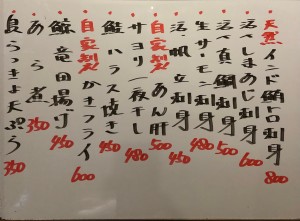 天然インド鮪トロ刺身 800
活〆しまあじ刺身 600
活〆真鯛刺身 500
生サーモン刺身 480
活帆立刺身 450
自家製 あん肝 500
サヨリ一夜干し 480
鮭ハラス焼き 450
自家製 かきフライ 600
鯨竜田揚げ 450
あら煮 350
島らっきょ天ぷら 350